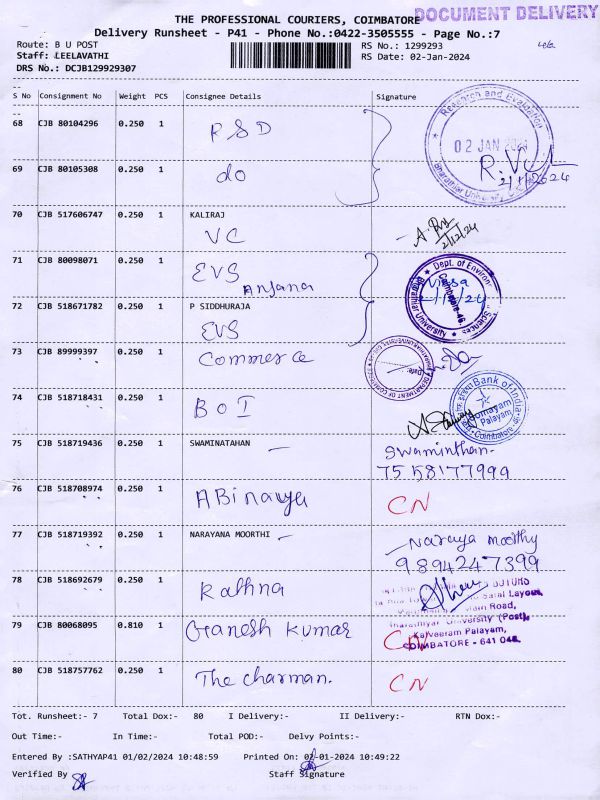 THE PROFESSIONAL COURIERS, COIMBATORE
DOCUMENT DELIVERY
Delivery Runsheet - P41 - Phone No.:0422-3505555 - Page No.:7
Route: B U POST
RS No.: 1299293
Staff: LEELAVATHI
RS Date: 02-Jan-2024
DRS No.: DCJB129929307
S No Consignment No Weight PCS Consignee Details Signature
68 CJB 80104296 0.250 1 RSD
Research and Evaluation
02 JAN 2024
Bharathiar University
69 CJB 80105308 0.250 1 do
2/1/2024
70 CJB 517606747 0.250 1 KALIRAJ
VC
2/12/24
71 CJB 80098071 0.250 1 EVS
Anjana
Dept. of Environ
Sciences
Bharathiar University
Coimbatore-46
72 CJB 518671782 0.250 1 P SIDDHURAJA
EVS
73 CJB 89999397 0.250 1 Commerce
DEPARTMENT OF COMMERCE
Date:
74 CJB 518718431 0.250 1 BOI
Bank of India
Palayam
Coimbatore
75 CJB 518719436 0.250 1 SWAMINATAHAN
Swaminthan
75 58177999
76 CJB 518708974 0.250 1 ABinaya CN
77 CJB 518719392 0.250 1 NARAYANA MOORTHI
Naraya moorthy
9894247399
78 CJB 518692679 0.250 1 Rathna
Layout,
Road,
Bharathiar University (Post),
Kalveeram Palayam,
COIMBATORE - 641 046.
79 CJB 80068095 0.810 1 Ganesh Kumar CN
80 CJB 518757762 0.250 1 The charman. CN
Tot. Runsheet:- 7 Total Dox:- 80 I Delivery:- II Delivery:- RTN Dox:-
Out Time:- In Time:- Total POD:- Delvy Points:-
Entered By :SATHYAP41 01/02/2024 10:48:59 Printed On: 02-01-2024 10:49:22
Verified By Staff Signature